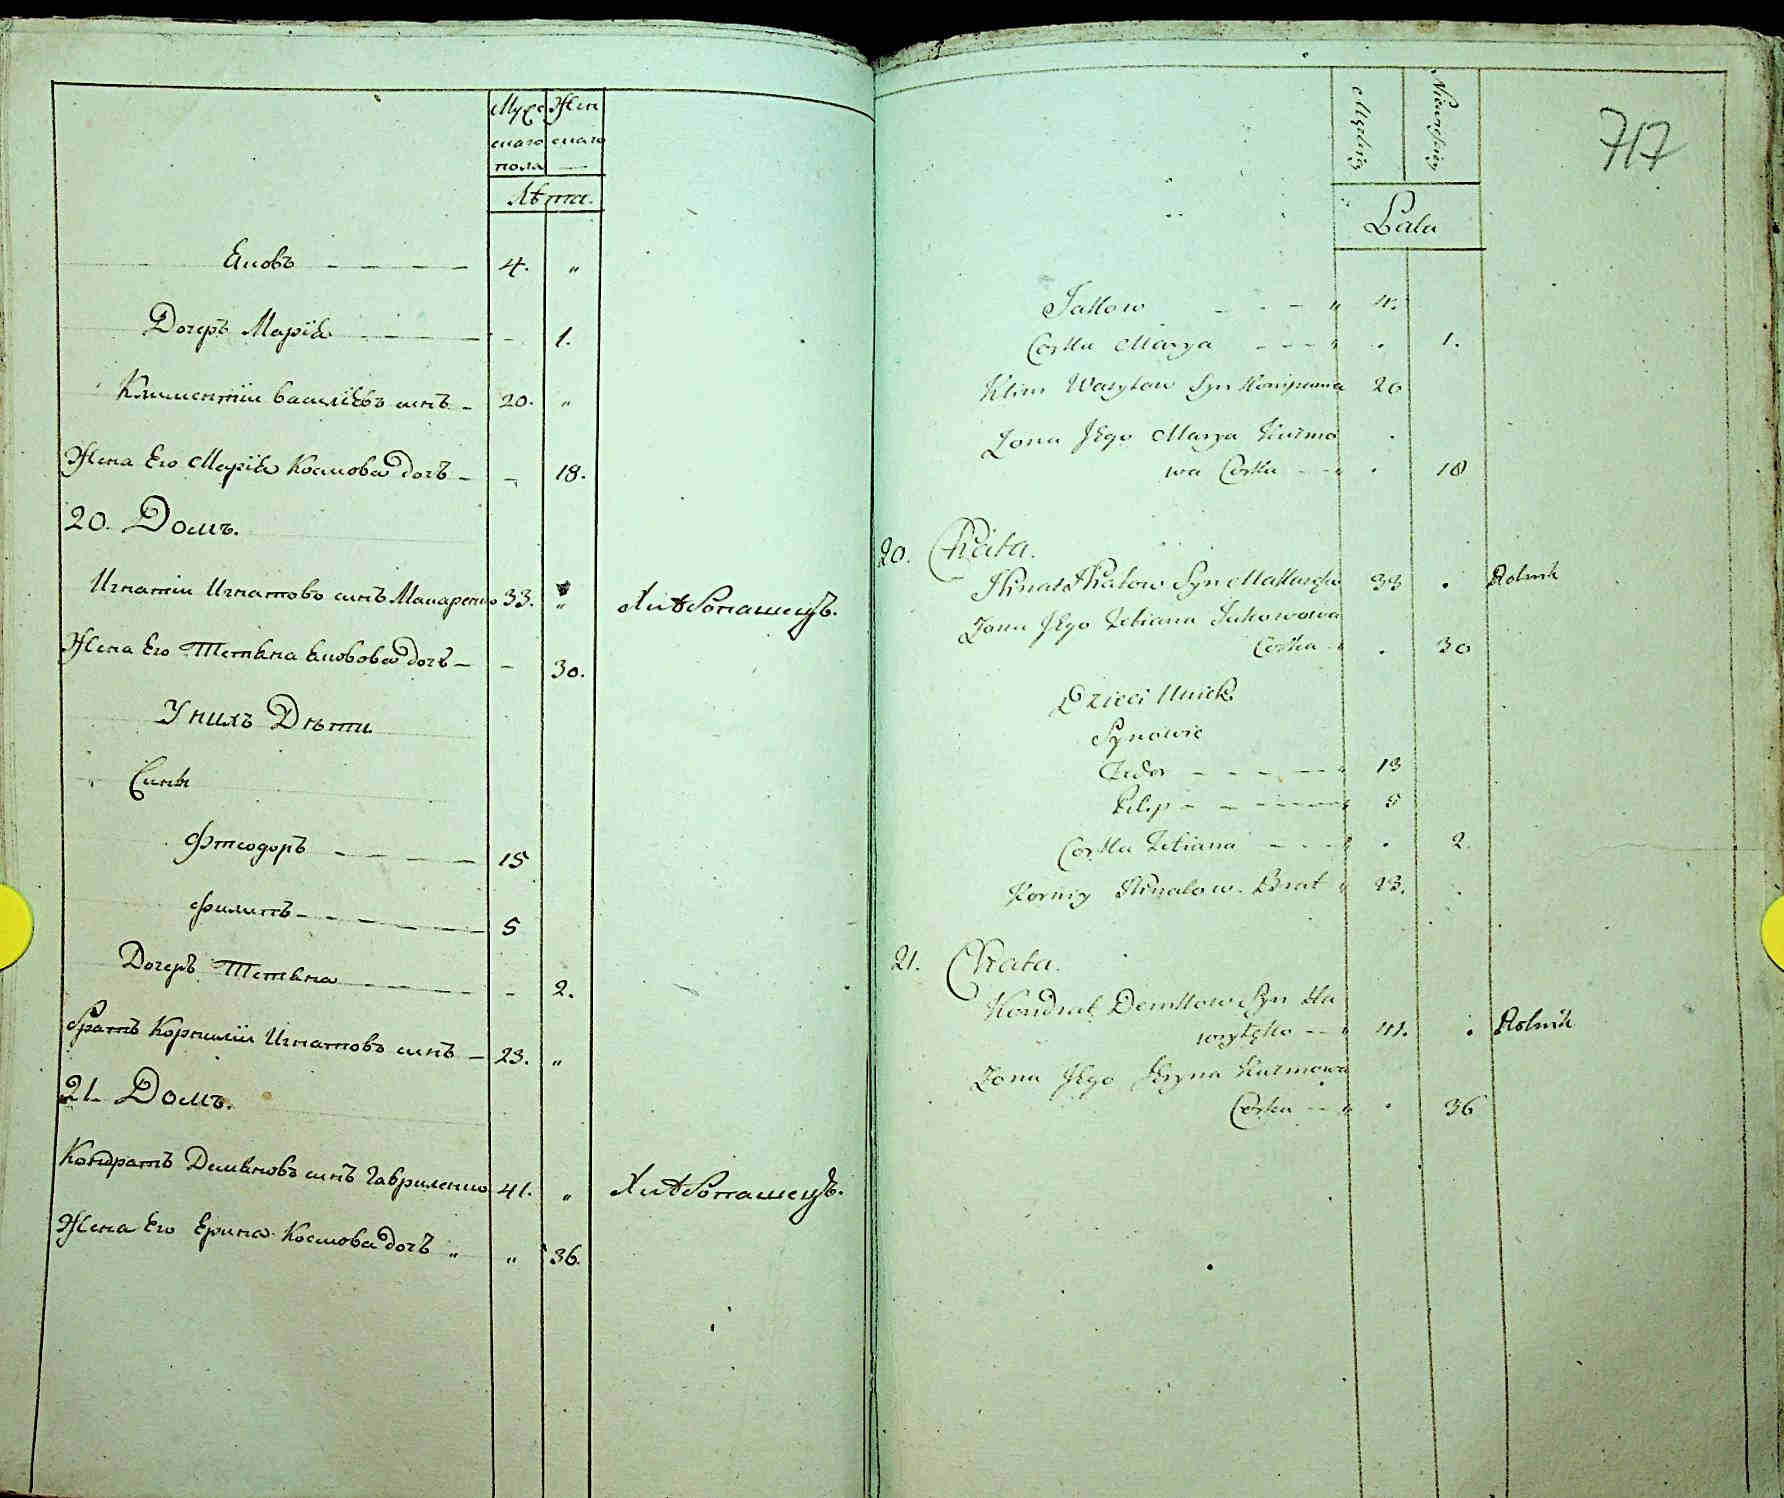 Мужескаго пола
Женскаго —
Лѣта.
Яковъ — — — — 4. „
Дочерь Марія — — — - 1.
Климентiи Василіевъ синъ – 20. „
Жена Его Марія Космова дочь – - 18.
20. Домъ.
Игнатiи Игнатовъ синъ Макаренко 33. „ Хлѣбопашецъ.
Жена Его Тетяна Яковова дочь – – 30.
У нихъ Дѣти
Сини
Фтеодоръ — — — — 15
Филипъ — — — — 5
Дочерь Тетяна — — — – 2.
Братъ Корнилiи Игнатовъ синъ – 23. „
21. Домъ.
Кондратъ Демяновъ синъ Гавриленко 41. „ Хлѣбопашецъ.
Жена Его Ерина Космова дочь „ „ 36.
717
Męzkiey
Niewieskiey
Lata
Jakow – – – „ 4.
Corka Marya – – – „ . 1.
Klim Wasylow Syn 20
Zona Jego Marya Kuzmo
wa Corka – – „ . 18
20. Chata.
Ihnat Ihnatow Syn Makaręko 33 . Rolnik
Zona Jego Tetiana Jakowowa
Corka – „ . 30
Dzieci Unich
Synowie
Fedor – – – – „ 13
Pilip – – – – „ 5
Corka Tetiana – – – „ . 2.
Korniy Ihnatow Brat „ 23.
21. Chata.
Kondrat Demkow Syn Ha
wryłęko – – „ 41. . Rolnik
Zona Jego Jeryna Kuzmowa
Corka – – „ . 36